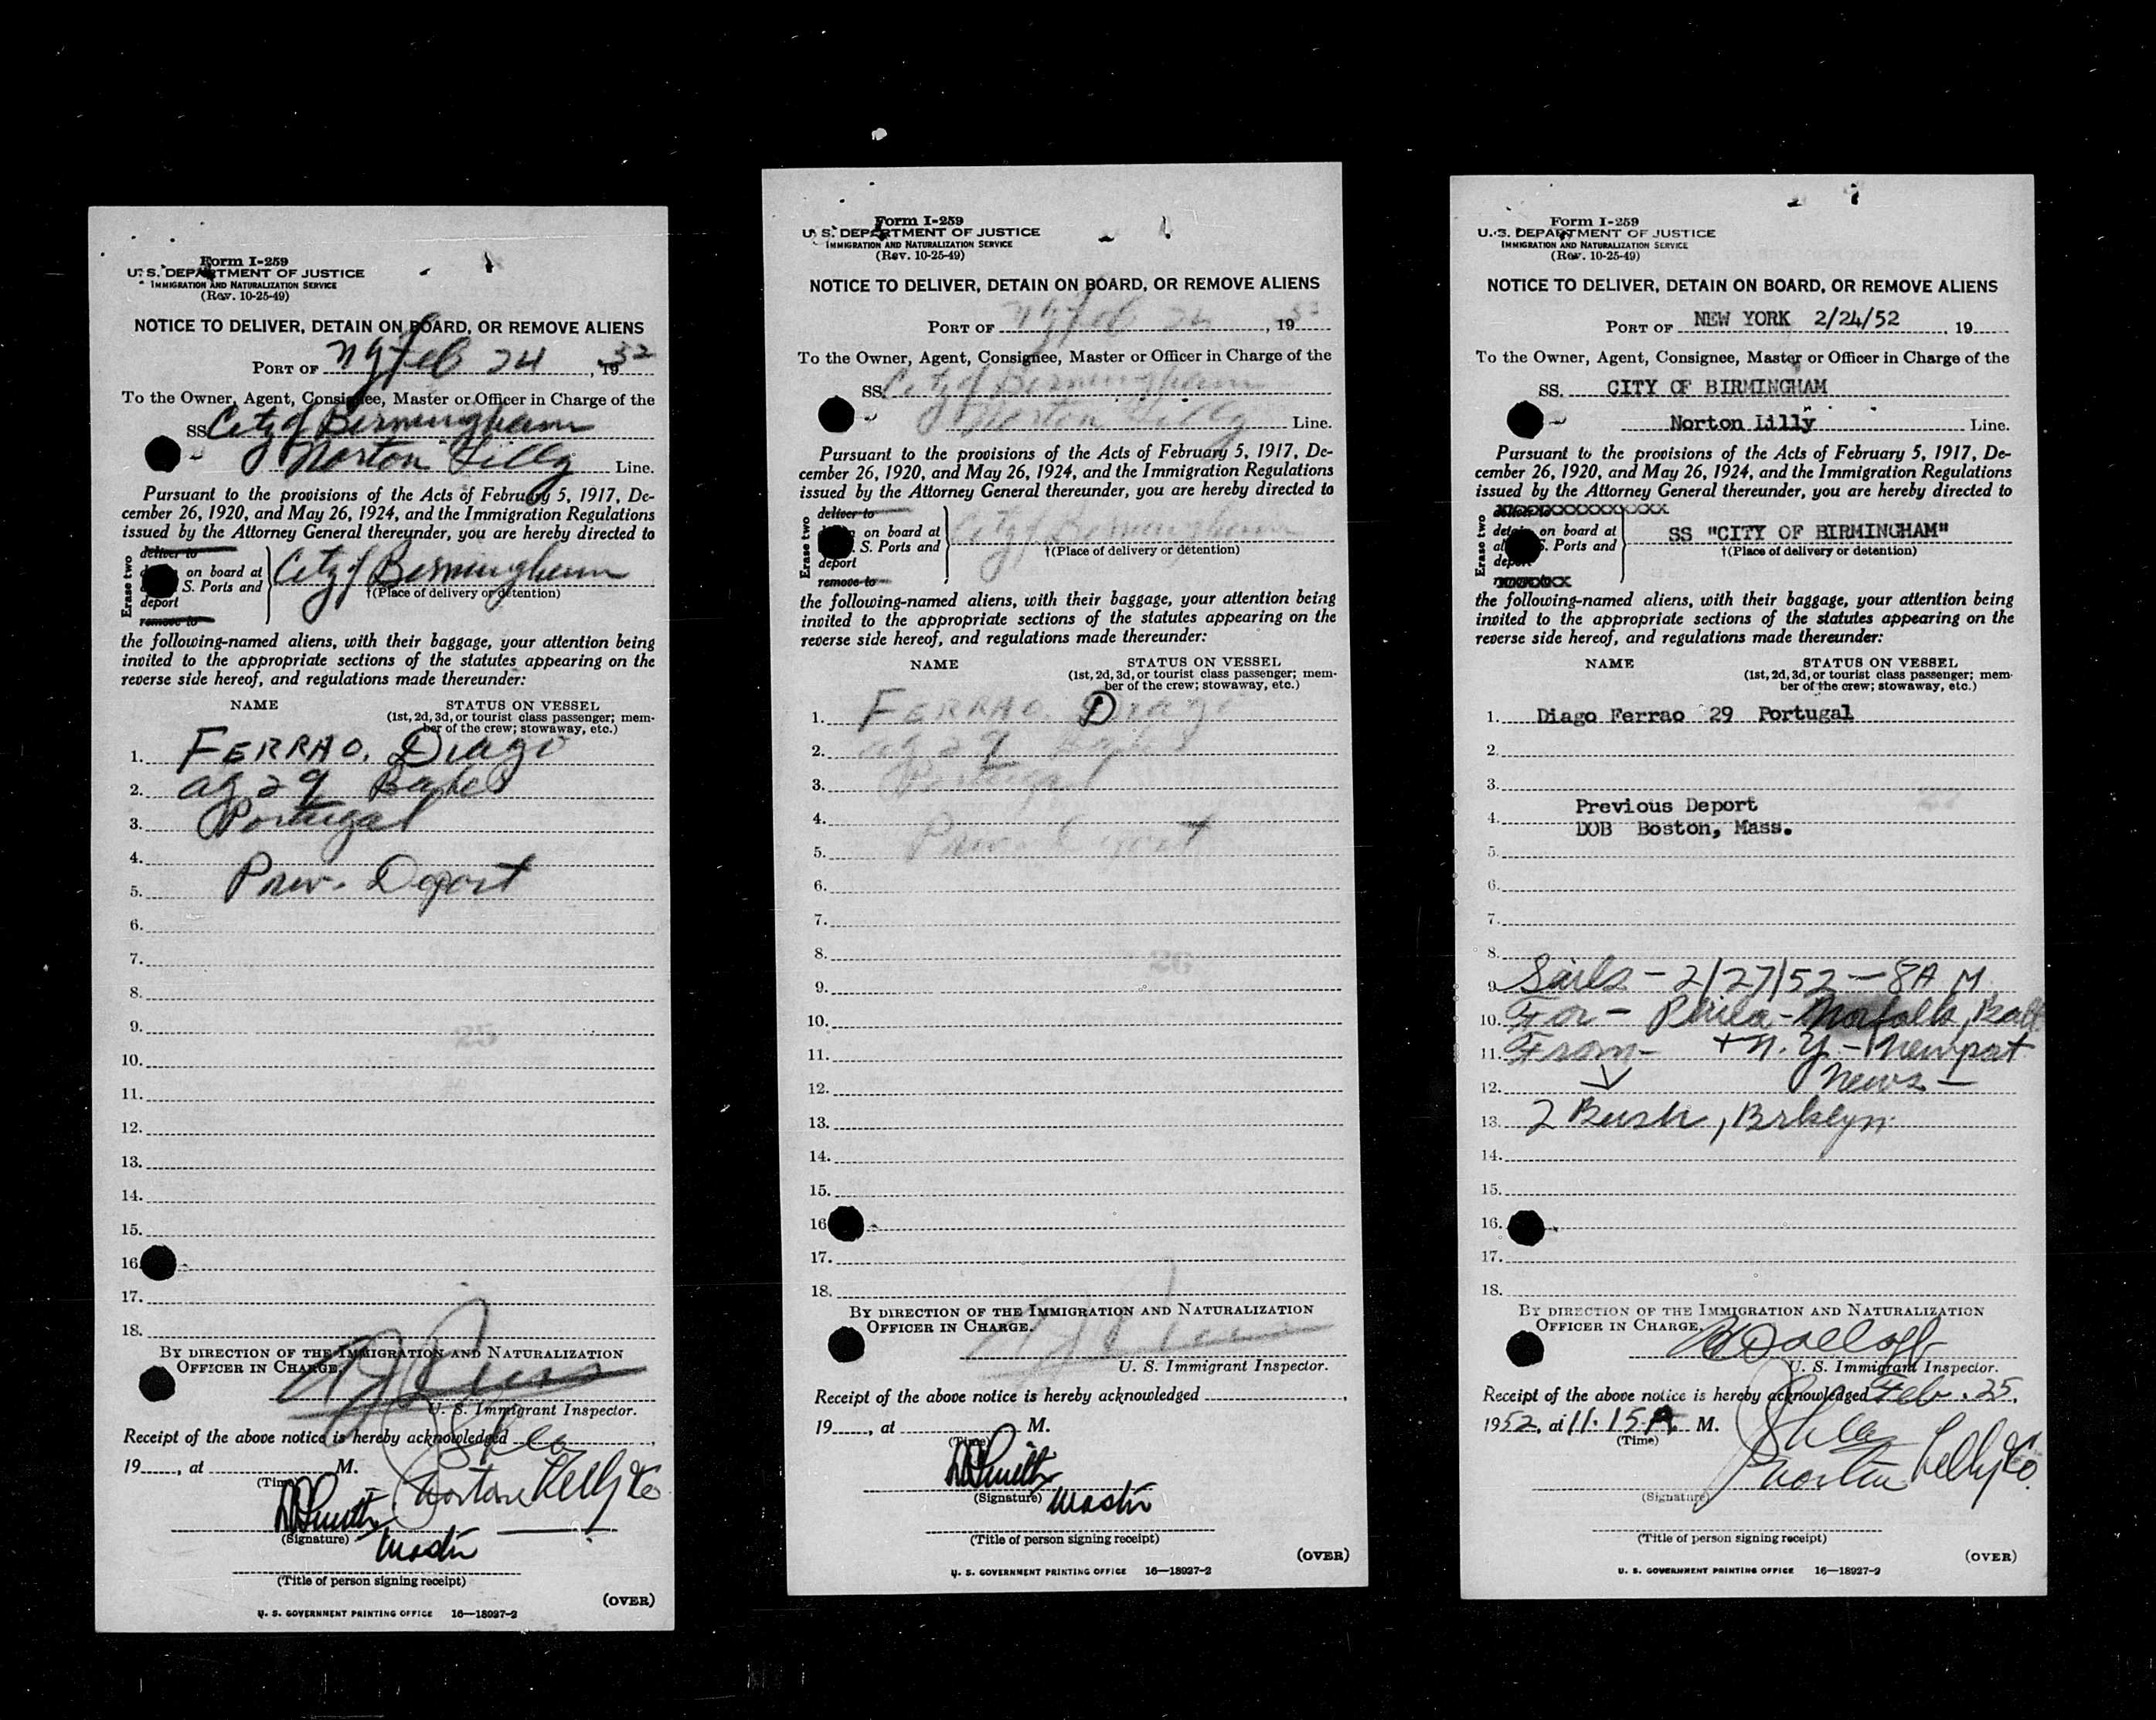 Form I-259
U. S. DEPARTMENT OF JUSTICE
IMMIGRATION AND NATURALIZATION SERVICE
(Rev. 10-25-49)
NOTICE TO DELIVER, DETAIN ON BOARD, OR REMOVE ALIENS
PORT OF NY Feb 24, 1952
To the Owner, Agent, Consignee, Master or Officer in Charge of the
SS City of Birmingham
Norton Lilly Line.
Pursuant to the provisions of the Acts of February 5, 1917, De-
cember 26, 1920, and May 26, 1924, and the Immigration Regulations
issued by the Attorney General thereunder, you are hereby directed to
Erase two
deliver to
on board at
S. Ports and
deport
remove to
City of Birmingham
†(Place of delivery or detention)
the following-named aliens, with their baggage, your attention being
invited to the appropriate sections of the statutes appearing on the
reverse side hereof, and regulations made thereunder:
NAME STATUS ON VESSEL
(1st, 2d, 3d, or tourist class passenger; mem-
ber of the crew; stowaway, etc.)
1. FERRAO, Diago
2. ag 29
3. Portugal
4.
5. Prev. Deport
6.
7.
8.
9.
25
10.
11.
12.
13.
14.
15.
16.
17.
18.
BY DIRECTION OF THE IMMIGRATION AND NATURALIZATION
OFFICER IN CHARGE.
U. S. Immigrant Inspector.
Receipt of the above notice is hereby acknowledged
19, at M.
(Time)
Norton Lilly & Co
(Signature)
Master
(Title of person signing receipt)
(OVER)
U. S. GOVERNMENT PRINTING OFFICE 16—18927-2
Form I-259
U. S. DEPARTMENT OF JUSTICE
IMMIGRATION AND NATURALIZATION SERVICE
(Rev. 10-25-49)
NOTICE TO DELIVER, DETAIN ON BOARD, OR REMOVE ALIENS
PORT OF NY Feb 24, 1952
To the Owner, Agent, Consignee, Master or Officer in Charge of the
SS City of Birmingham
Norton Lilly Line.
Pursuant to the provisions of the Acts of February 5, 1917, De-
cember 26, 1920, and May 26, 1924, and the Immigration Regulations
issued by the Attorney General thereunder, you are hereby directed to
Erase two
deliver to
on board at
S. Ports and
deport
remove to
City of Birmingham
†(Place of delivery or detention)
the following-named aliens, with their baggage, your attention being
invited to the appropriate sections of the statutes appearing on the
reverse side hereof, and regulations made thereunder:
NAME STATUS ON VESSEL
(1st, 2d, 3d, or tourist class passenger; mem-
ber of the crew; stowaway, etc.)
1. FERRAO, Diago
2. ag 29
3. Portugal
4.
5. Prev. Deport
6.
7.
8.
26
9.
10.
11.
12.
13.
14.
15.
16
17.
18.
BY DIRECTION OF THE IMMIGRATION AND NATURALIZATION
OFFICER IN CHARGE.
U. S. Immigrant Inspector.
Receipt of the above notice is hereby acknowledged
19, at M.
(Time)
(Signature)
Master
(Title of person signing receipt)
(OVER)
U. S. GOVERNMENT PRINTING OFFICE 16—18927-2
Form I-259
U. S. DEPARTMENT OF JUSTICE
IMMIGRATION AND NATURALIZATION SERVICE
(Rev. 10-25-49)
NOTICE TO DELIVER, DETAIN ON BOARD, OR REMOVE ALIENS
PORT OF NEW YORK 2/24/52, 19
To the Owner, Agent, Consignee, Master or Officer in Charge of the
SS. CITY OF BIRMINGHAM
Norton Lilly Line.
Pursuant to the provisions of the Acts of February 5, 1917, De-
cember 26, 1920, and May 26, 1924, and the Immigration Regulations
issued by the Attorney General thereunder, you are hereby directed to
Erase two
on board at
Ports and
deport
SS "CITY OF BIRMINGHAM"
†(Place of delivery or detention)
the following-named aliens, with their baggage, your attention being
invited to the appropriate sections of the statutes appearing on the
reverse side hereof, and regulations made thereunder:
NAME STATUS ON VESSEL
(1st, 2d, 3d, or tourist class passenger; mem-
ber of the crew; stowaway, etc.)
1. Diago Ferrao 29 Portugal
2.
3.
27
Previous Deport
4.
DOB Boston, Mass.
5.
6.
7.
8.
9. Sails - 2/27/52 - 8 A M
10. For - Phila - Norfolk, Balt
11. From - + N.Y. - Newport
12. News -
13. 2 Bush, Brklyn
14.
15.
16.
17.
18.
BY DIRECTION OF THE IMMIGRATION AND NATURALIZATION
OFFICER IN CHARGE.
U. S. Immigrant Inspector.
Receipt of the above notice is hereby acknowledged Feb. 25,
1952, at 11:15 A. M.
(Time)
Norton Lilly & Co.
(Signature)
(Title of person signing receipt)
(OVER)
U. S. GOVERNMENT PRINTING OFFICE 16—18927-2